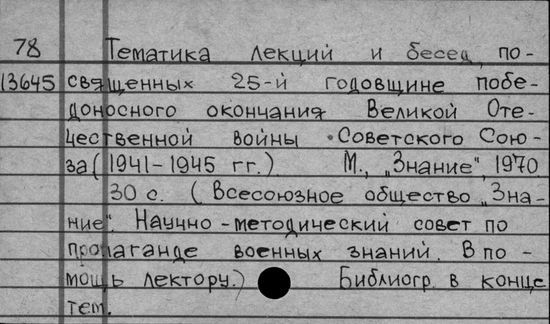 78 Тематика лекций и бесед, по-
13645 священных 25-й годовщине побе-
доносного окончания Великой Оте-
чественной войны Советского Сою-
за (1941-1945 гг.) М., „Знание", 1970
30 с. (Всесоюзное общество „Зна-
ние". Научно-методический совет по
пропаганде военных знаний. В по-
мощь лектору.) Библиогр. в конце
тем.